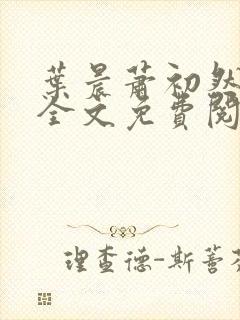 葉晨蕭初然
全文免費閱
理查德-斯蓋